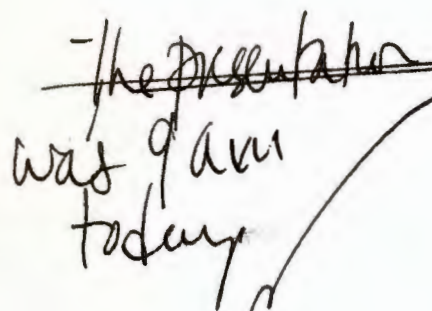 - The presentation
was 9 am
today